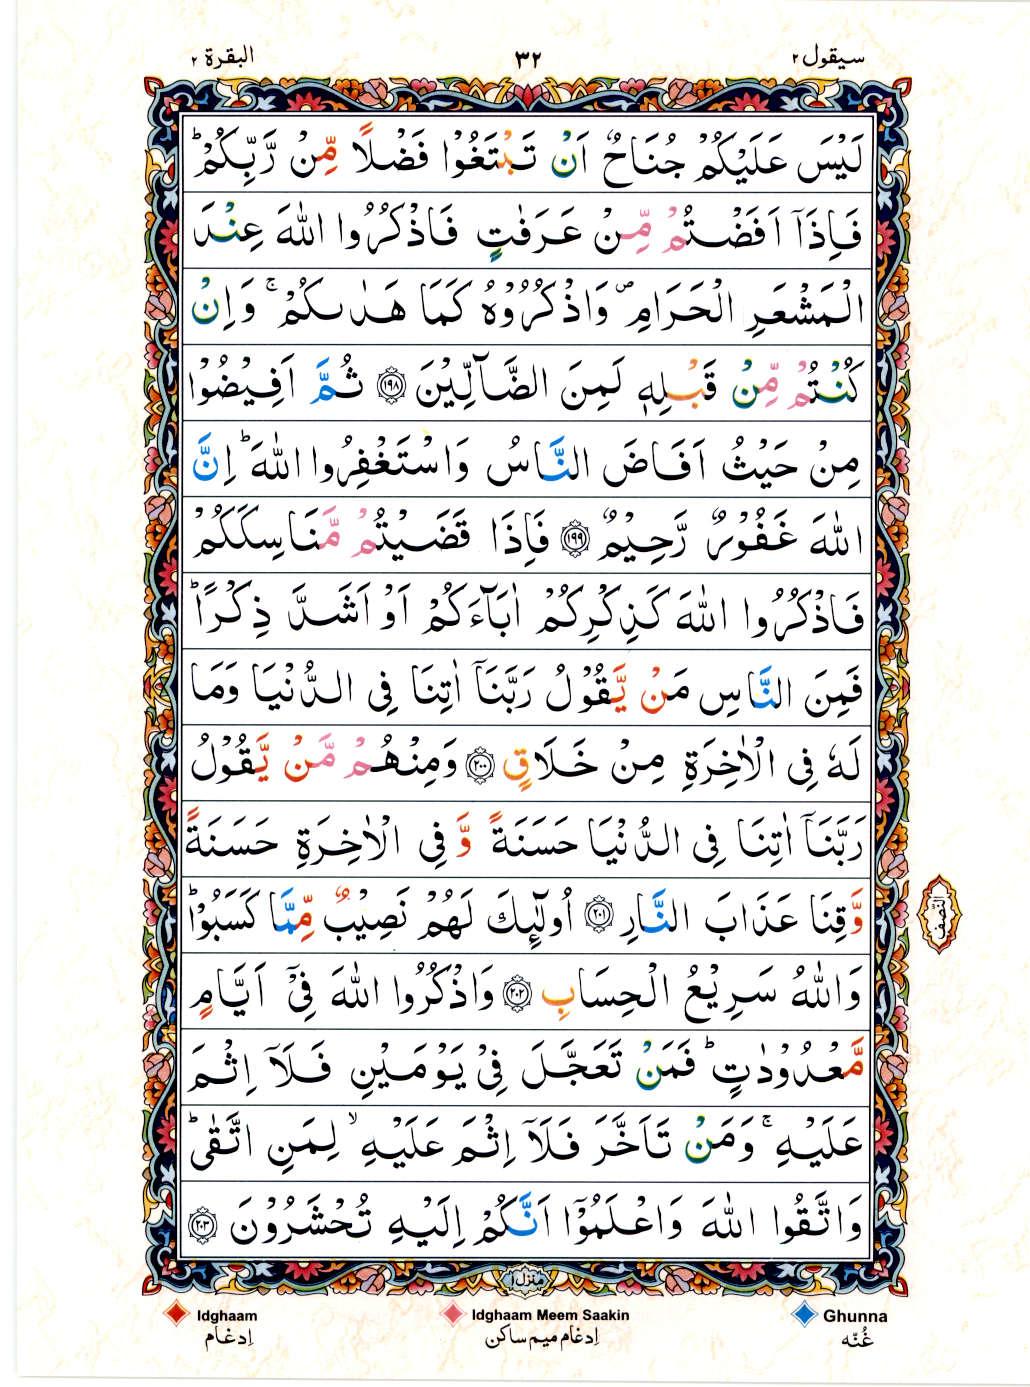 سيقول ٢ ٣٢ البقرة ٢
لَيْسَ عَلَيْكُمْ جُنَاحٌ اَنْ تَبْتَغُوْا فَضْلًا مِّنْ رَّبِّكُمْ ؕ
فَاِذَاۤ اَفَضْتُمْ مِّنْ عَرَفٰتٍ فَاذْكُرُوا اللّٰهَ عِنْدَ
الْمَشْعَرِ الْحَرَامِ ۪ وَاذْكُرُوْهُ كَمَا هَدٰىكُمْ ۚ وَاِنْ
كُنْتُمْ مِّنْ قَبْلِهٖ لَمِنَ الضَّآلِّيْنَ ﴿١٩٨﴾ ثُمَّ اَفِيْضُوْا
مِنْ حَيْثُ اَفَاضَ النَّاسُ وَاسْتَغْفِرُوا اللّٰهَ ؕ اِنَّ
اللّٰهَ غَفُوْرٌ رَّحِيْمٌ ﴿١٩٩﴾ فَاِذَا قَضَيْتُمْ مَّنَاسِكَكُمْ
فَاذْكُرُوا اللّٰهَ كَذِكْرِكُمْ اٰبَآءَكُمْ اَوْ اَشَدَّ ذِكْرًا ؕ
فَمِنَ النَّاسِ مَنْ يَّقُوْلُ رَبَّنَاۤ اٰتِنَا فِى الدُّنْيَا وَمَا
لَهٗ فِى الْاٰخِرَةِ مِنْ خَلَاقٍ ﴿٢٠٠﴾ وَمِنْهُمْ مَّنْ يَّقُوْلُ
رَبَّنَاۤ اٰتِنَا فِى الدُّنْيَا حَسَنَةً وَّ فِى الْاٰخِرَةِ حَسَنَةً
وَّقِنَا عَذَابَ النَّارِ ﴿٢٠١﴾ اُولٰٓئِكَ لَهُمْ نَصِيْبٌ مِّمَّا كَسَبُوْا ؕ
وَاللّٰهُ سَرِيْعُ الْحِسَابِ ﴿٢٠٢﴾ وَاذْكُرُوا اللّٰهَ فِىْۤ اَيَّامٍ
مَّعْدُوْدٰتٍ ؕ فَمَنْ تَعَجَّلَ فِىْ يَوْمَيْنِ فَلَاۤ اِثْمَ
عَلَيْهِ ۚ وَمَنْ تَاَخَّرَ فَلَاۤ اِثْمَ عَلَيْهِ ۙ لِمَنِ اتَّقٰى ؕ
وَاتَّقُوا اللّٰهَ وَاعْلَمُوْۤا اَنَّكُمْ اِلَيْهِ تُحْشَرُوْنَ ﴿٢٠٣﴾
النّصف
منزل ١
Idghaam Idghaam Meem Saakin Ghunna
اِدغام اِدغام میم ساکن غُنّه